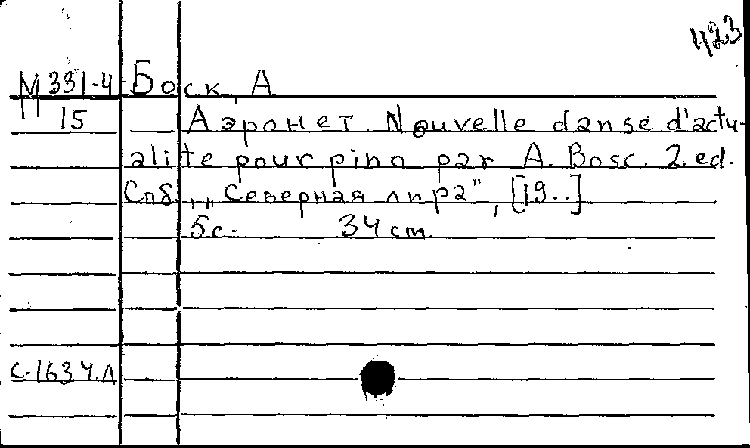 423
М 331-4 Боск, А
15 Аэронет. Nouvelle danse d'actu-
alite pour pino par A. Bosc. 2. ed.
Спб., "Северная лира", [19..]
5с. 34 cm.
с-1634.л